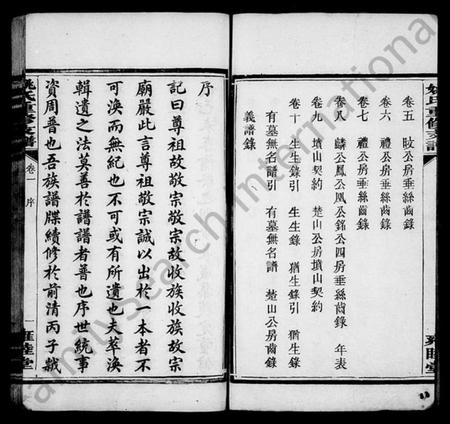 卷五 公房垂絲齒錄
卷六 禮公房垂絲齒錄
卷七 禮公房垂絲齒錄
卷八 麟公鳳公凰公銘公四房垂絲齒錄 年表
卷九 墳山契約 楚山公房墳山契約
卷十 生生錄引 生生錄 猶生錄引 猶生錄
有墓無名譜引 有墓無名譜 楚山公房齒錄
義譜錄
雍睦堂
序
記曰尊祖故敬宗敬宗故收族收族故宗
廟嚴此言尊祖敬宗誠以出於一本者不
可渙而無紀也不可或有所遺也夫萃渙
輯遺之法莫善於譜譜者普也序世統事
資周普也吾族譜牒續修於前清丙子越
姚氏重修支譜
卷一 序
一 雍睦堂
FamilySearch International